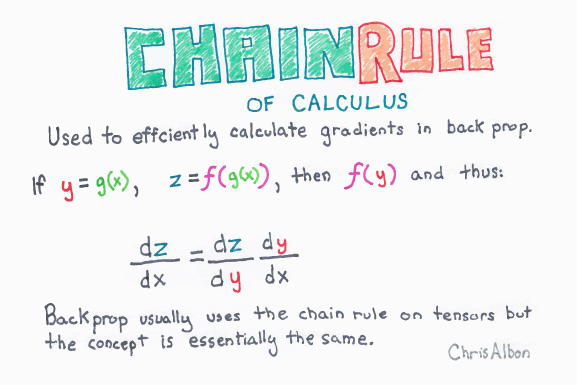 CHAIN RULE
OF CALCULUS
Used to effciently calculate gradients in back prop.
If y = g(x), z = f(g(x)), then f(y) and thus:
dz/dx = dz/dy dy/dx
Backprop usually uses the chain rule on tensors but
the concept is essentially the same.
Chris Albon